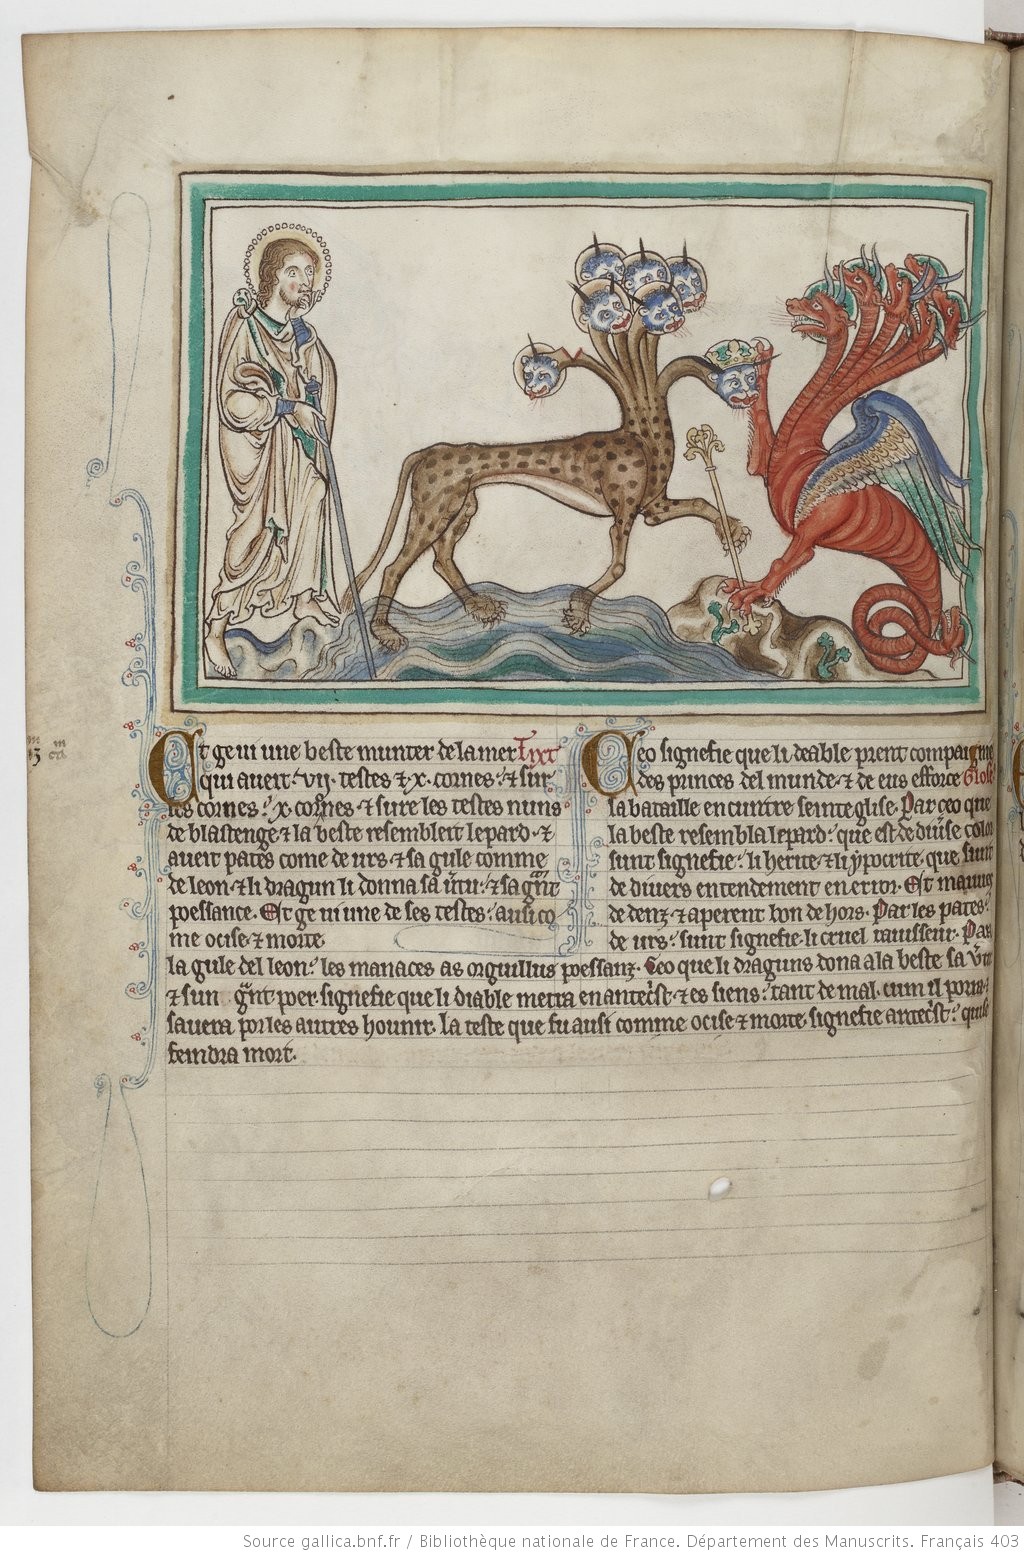 Et ge ui une beste munter de la mer Tixt
qui aueit .vij. testes ⁊ x. cornes. ⁊ sur
les cornes. x. cornes. ⁊ sure les testes nuns
de blastenge. ⁊ la beste resembleit lepard. ⁊
aueit pates come de urs. ⁊ sa gule comme
de leon. ⁊ li dragun li donna sa ⁊ sa
poessance. Et ge ui une de ses testes. ausi co
me ocise ⁊ morte.
Ceo signefie que li deable prent compaignie
des princes del munde. ⁊ de eus efforce Glose
la bataille encuntre seinte glise. Par ceo que
la beste resembla lepard. que est de diuerse color
sunt signefie. li herite. ⁊ li ypocrite. que sunt
de diuers entendement en error. Et mauueis
dedenz. ⁊ aperent bon dehors. Par les pates
de urs. sunt signefie. li cruel rauisseur. Par
la gule del leon. les manaces as orguillus poessanz. Ceo que li draguns dona a la beste sa
⁊ sun poer. signefie que li diable metra en ⁊ es siens. tant de mal. cum il porra
sauera por les autres hounir. la teste que fu ausi comme ocise ⁊ morte. signefie quise
feindra mort.
Source gallica.bnf.fr / Bibliothèque nationale de France. Département des Manuscrits. Français 403